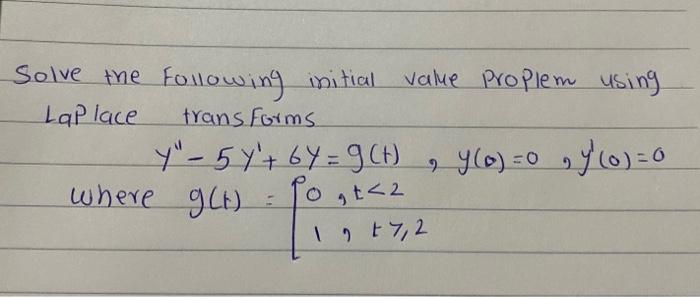 Solve the Following initial value proplem using
Laplace transforms
y" - 5y' + 6y = g(t) , y(0) = 0 , y'(0) = 0
where g(t) = { 0 , t < 2
1 , t ≥ 2